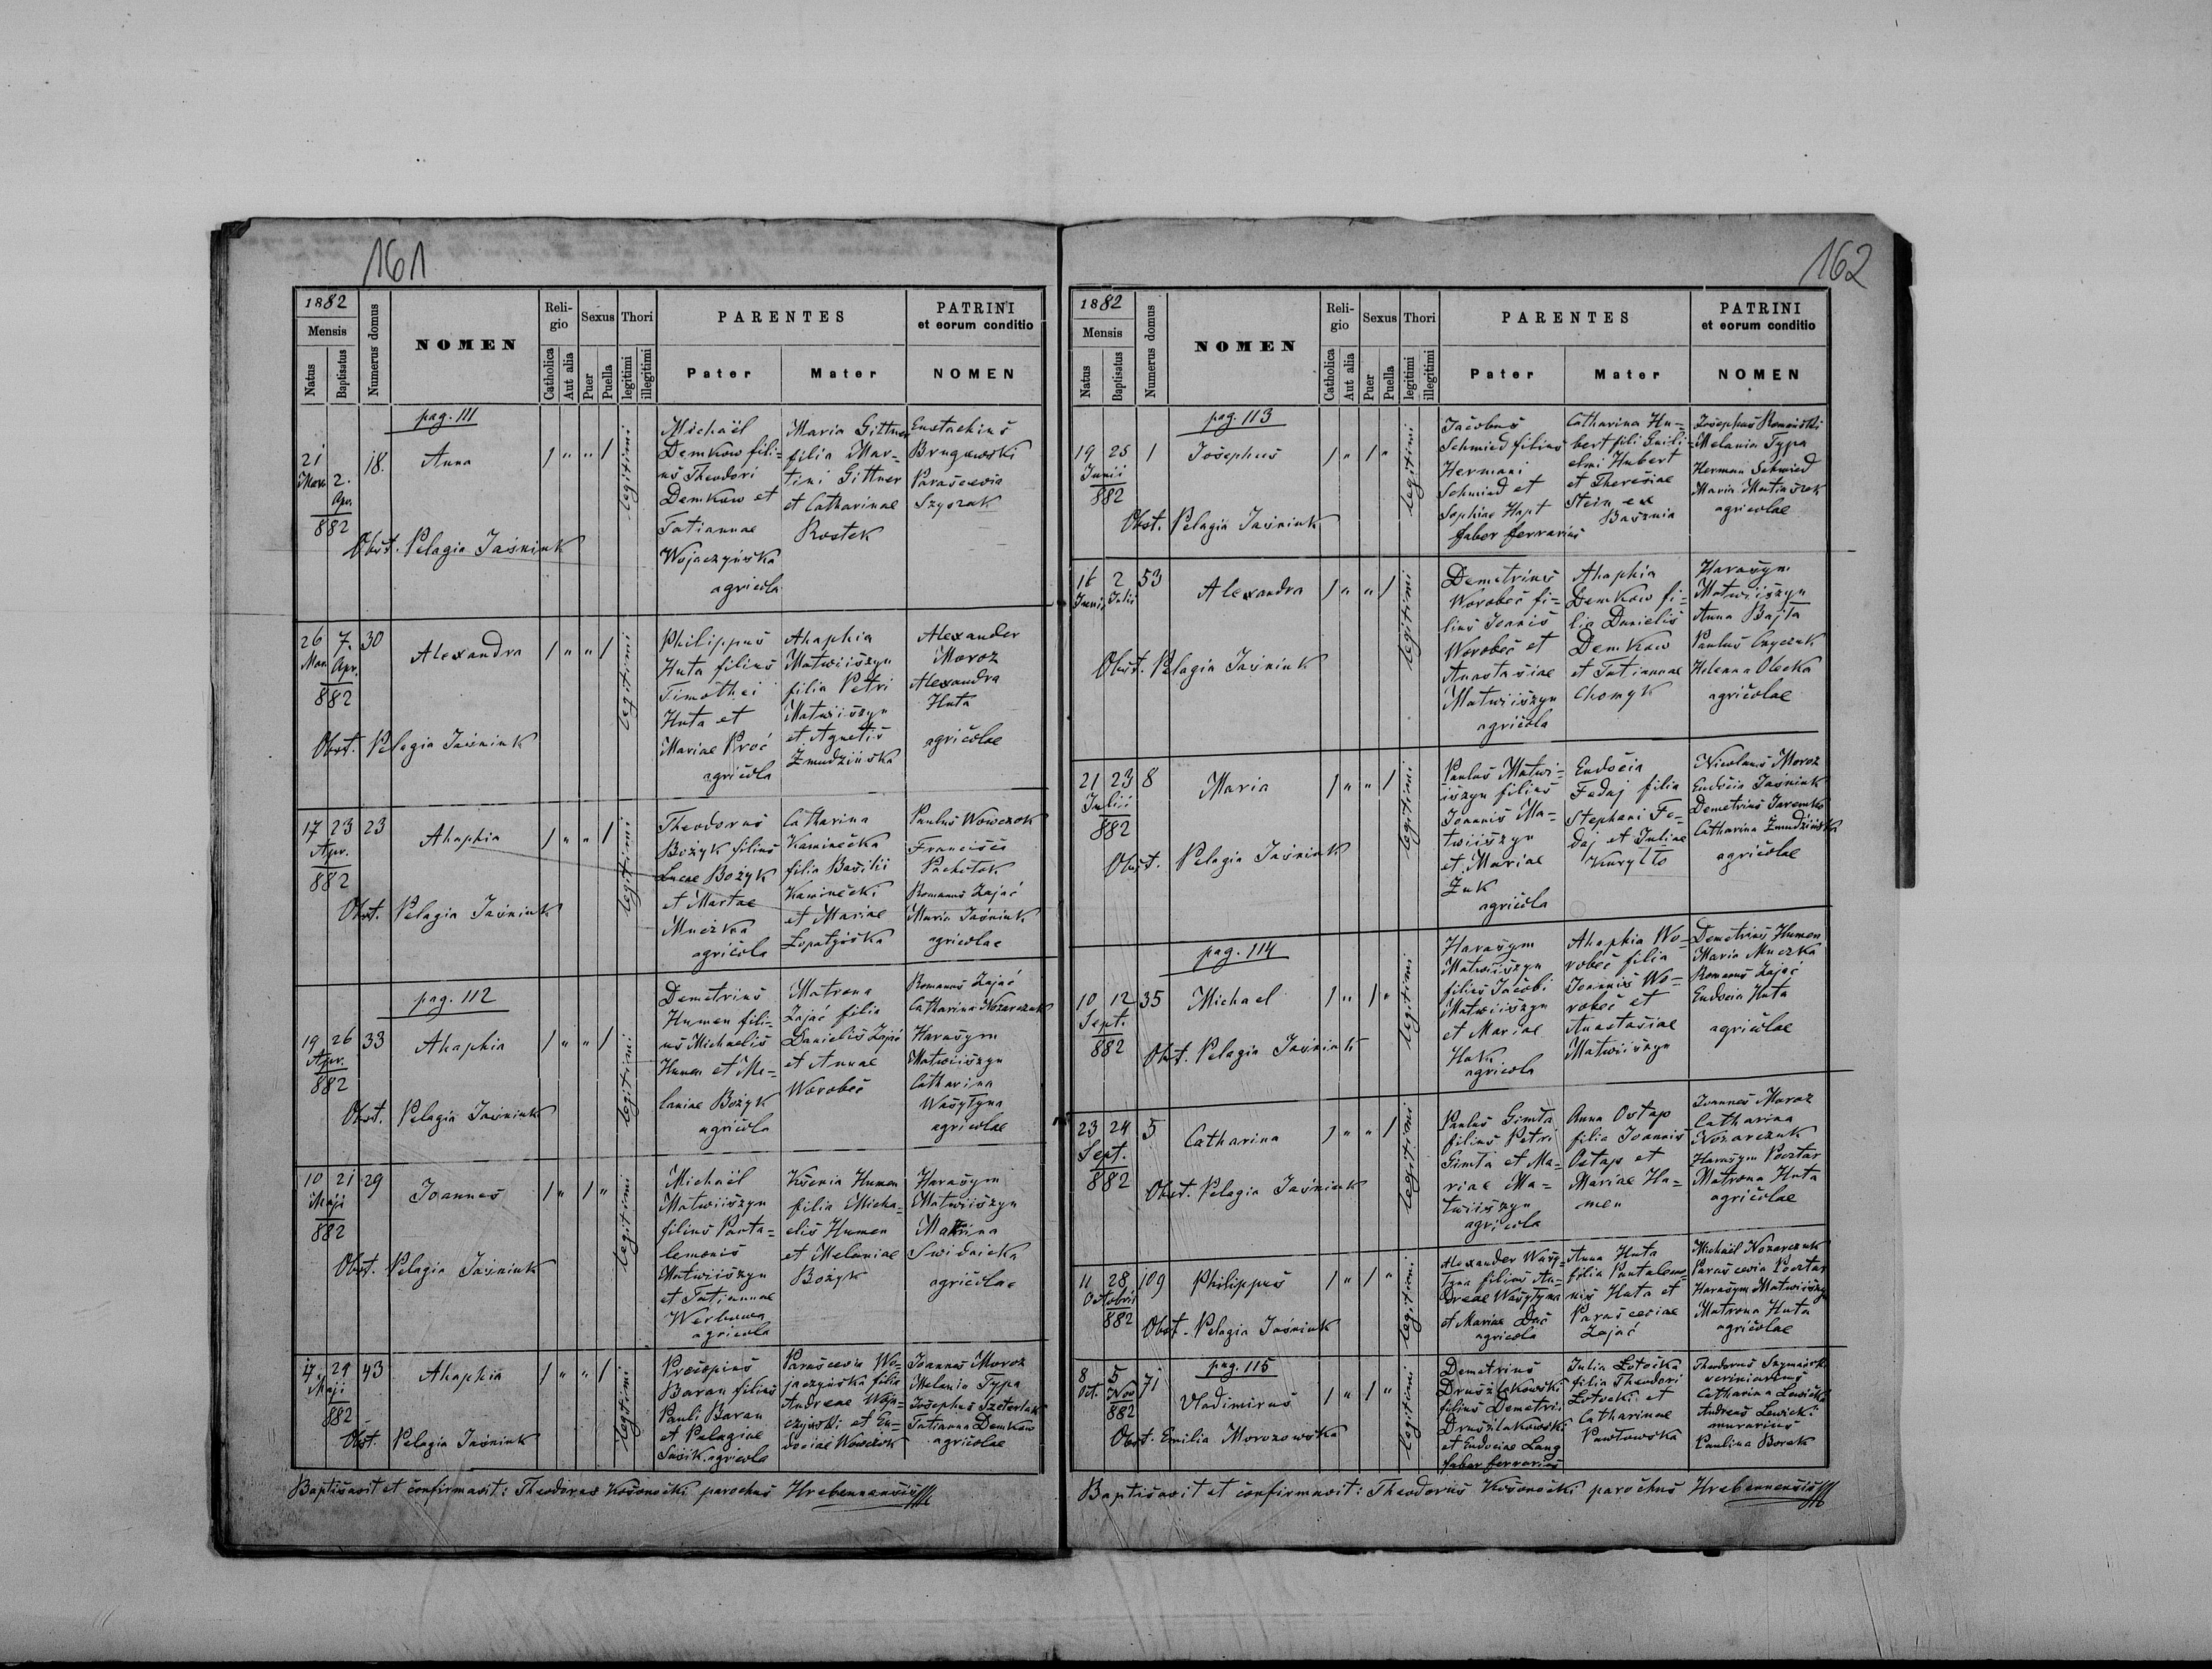 161
1882
Mensis
Natus
Baptisatus
Numerus domus
NOMEN
Reli-
gio
Catholica
Aut alia
Sexus
Puer
Puella
Thori
legitimi
illegitimi
PARENTES
Pater
Mater
PATRINI
et eorum conditio
NOMEN
pag. 111
21 Mar. 2. Apr. 882
18.
Anna
1 " " 1
legitimi
Obst. Pelagia Jaśniuk
Michaël
Demkow fili-
us Theodori
Demkow et
Tatiannae
Wojaczyńska
agricola
Maria Gittner
filia Mar-
tini Gittner
et Catharinae
Rostek
Eustachius
Brugowski
Parascevia
Szyszak
26 Mar. 7. Apr. 882
30
Alexandra
1 " " 1
legitimi
Obst. Pelagia Jaśniuk
Philippus
Huta filius
Timothei
Huta et
Mariae Proć
agricola
Ahaphia
Matwiiszyn
filia Petri
Matwiiszyn
et Agnetis
Żmudzińska
Alexander
Moroz
Alexandra
Huta
agricolae
17 23
Apr.
882
23
Ahaphia
1 " " 1
legitimi
Obst. Pelagia Jaśniuk
Theodorus
Bożyk filius
Lucae Bożyk
et Martae
Muczka
agricola
Catharina
Kaminecka
filia Basilii
Kaminecki
et Mariae
Łopatyńska
Paulus Wowczok
Francisca
Pachotok
Romanus Zając
Maria Jaśniuk
agricolae
pag. 112
19 26
Apr.
882
33
Ahaphia
1 " " 1
legitimi
Obst. Pelagia Jaśniuk
Demetrius
Humen fili-
us Michaelis
Humen et Me-
laniae Bożyk
agricola
Matrona
Zając filia
Danielis Zając
et Annae
Worobec
Romanus Zając
Catharina Nozarczuk
Harasym
Matwiiszyn
Catharina
Wasytyna
agricolae
10 21
Maji
882
29
Joannes
1 " 1 "
legitimi
Obst. Pelagia Jaśniuk
Michaël
Matwiiszyn
filius Panta-
lemonis
Matwiiszyn
et Tatiannae
Werbowa
agricola
Ksenia Humen
filia Micha-
elis Humen
et Melaniae
Bożyk
Harasym
Matwiiszyn
Marina
Swidnicka
agricolae
17. 29
Maji
882
43
Ahaphia
1 " " 1
legitimi
Obst. Pelagia Jaśniuk
Procopius
Baran filius
Pauli Baran
et Pelagiae
Sasik. agricola
Parascevia Wo-
jaczyńska filia
Andreae Woja-
czyński et Eu-
dociae Wowczok
Joannes Moroz
Melania Typa
Josephus Szeterlak
Tatianna Demkow
agricolae
Baptisavit et confirmavit: Theodorus Kosonocki parochus Hrebennensis
162
1882
Mensis
Natus
Baptisatus
Numerus domus
NOMEN
Reli-
gio
Catholica
Aut alia
Sexus
Puer
Puella
Thori
legitimi
illegitimi
PARENTES
Pater
Mater
PATRINI
et eorum conditio
NOMEN
pag. 113
19 25
Junii
882
1
Josephus
1 " 1 "
legitimi
Obst. Pelagia Jaśniuk
Jacobus
Schmied filius
Hermani
Schmied et
Sophiae Hapt
faber ferrarius
Catharina Hu-
bert fili Guili-
elmi Hubert
et Theresiae
Stein ex
Basznia
Josephus Romański
Melania Typa
Herman Schmied
Maria Martiaszek
agricolae
16 Junii 2 Julii
53
Alexandra
1 " " 1
legitimi
Obst. Pelagia Jaśniuk
Demetrius
Worobec fi-
lius Joanis
Worobec et
Anastasiae
Matwiiszyn
agricola
Ahaphia
Demkow fi-
lia Danielis
Demkow
et Tatiannae
Chomyk
Harasym
Matwiiszyn
Anna Bajta
Paulus Cryczuk
Helenna Olecka
agricolae
21 23
Julii
882
8
Maria
1 " " 1
legitimi
Obst. Pelagia Jaśniuk
Paulus Matwi-
iszyn filius
Joannis Ma-
twiiszyn
et Mariae
Żuk
agricola
Eudocia
Fedaj filia
Stephani Fe-
daj et Juliae
Kuryłło
Nicolaus Moroz
Eudocia Jaśniuk
Demetrius Jaremko
Catharina Żmudzińska
agricolae
pag. 114
10 12
Sept.
882
35
Michael
1 " 1 "
legitimi
Obst. Pelagia Jaśniuk
Harasym
Matwiiszyn
filius Jacobi
Matwiiszyn
et Mariae
Huk.
agricola
Ahaphia Wo-
robec filia
Joannis Wo-
robec et
Anastasiae
Matwiiszyn
Demetrius Humen
Maria Muczka
Romanus Zając
Eudocia Huta
agricolae
23 24
Sept.
882
5
Catharina
1 " " 1
legitimi
Obst. Pelagia Jaśniuk
Paulus Gimta
filius Petri
Gimta et Ma-
riae Ma-
twiiszyn
agricola
Anna Ostap
filia Joannis
Ostap et
Mariae Hu-
men
Joannes Moroz
Catharina
Nozarczuk
Harasym Pocztar
Matrona Huta
agricolae
11 28
Octobris
882
109
Philippus
1 " 1 "
legitimi
Obst. Pelagia Jaśniuk
Alexander Wasy-
tyna filius An-
dreae Wasytyna
et Mariae Duć
agricola
Anna Huta
filia Pantalemo-
nis Huta et
Parasceviae
Zając
Michaël Nozarczuk
Parascevia Pocztar
Harasym Matwiiszyn
Matrona Huta
agricolae
pag. 115
8 Oct. 5 Nov 882
71
Vladimirus
1 " 1 "
legitimi
Obst. Emilia Morozowska
Demetrius
Druszlakowski
filius Demetrii
Druszlakowski
et Eudociae Lang
faber ferrarius
Julia Łotocka
filia Theodori
Łotocki et
Catharinae
Pawłowska
Theodorus Szymański
Catharina Lewicka
Andreas Lewicki
murarius
Paulina Borek
Baptisavit et confirmavit: Theodorus Kosonocki parochus Hrebennensis